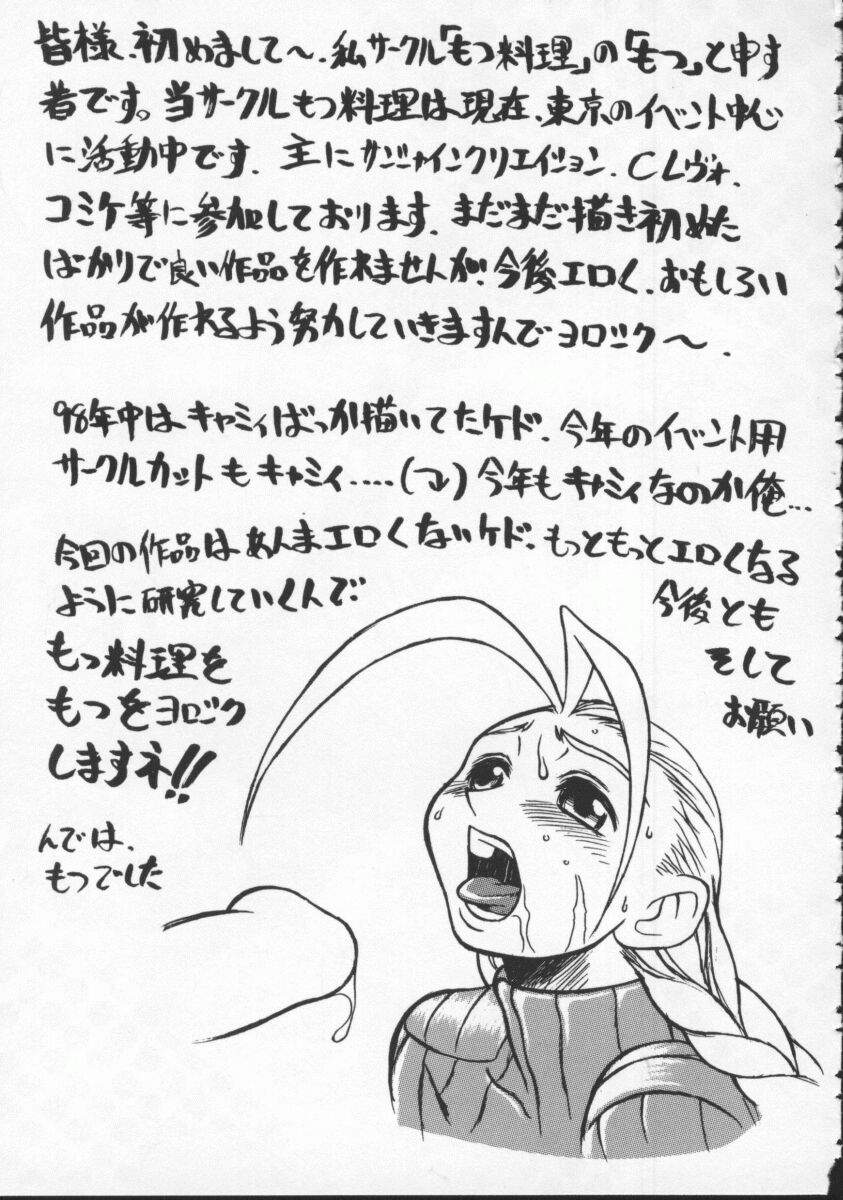 皆様、初めまして～、私サークル「もつ料理」の「もつ」と申す
者です。当サークルもつ料理は現在、東京のイベント中心
に活動中です。主にサンシャインクリエイション、CLヴォ、
コミケ等に参加しております。まだまだ描き初めた
ばかりで良い作品を作れませんが、今後エロく、おもしろい
作品が作れるよう努力していきますんでヨロシク～。
98年中はキャミィばっか描いてたケド、今年のイベント用
サークルカットもキャミィ....(つд)今年もキャミィなのか俺...
今回の作品はあんまエロくないケド、もっともっとエロくなる
ように研究していくんで
今後とも
もつ料理を
そして
もつをヨロシク
お願い
しますネ!!
んでは、
もつでした